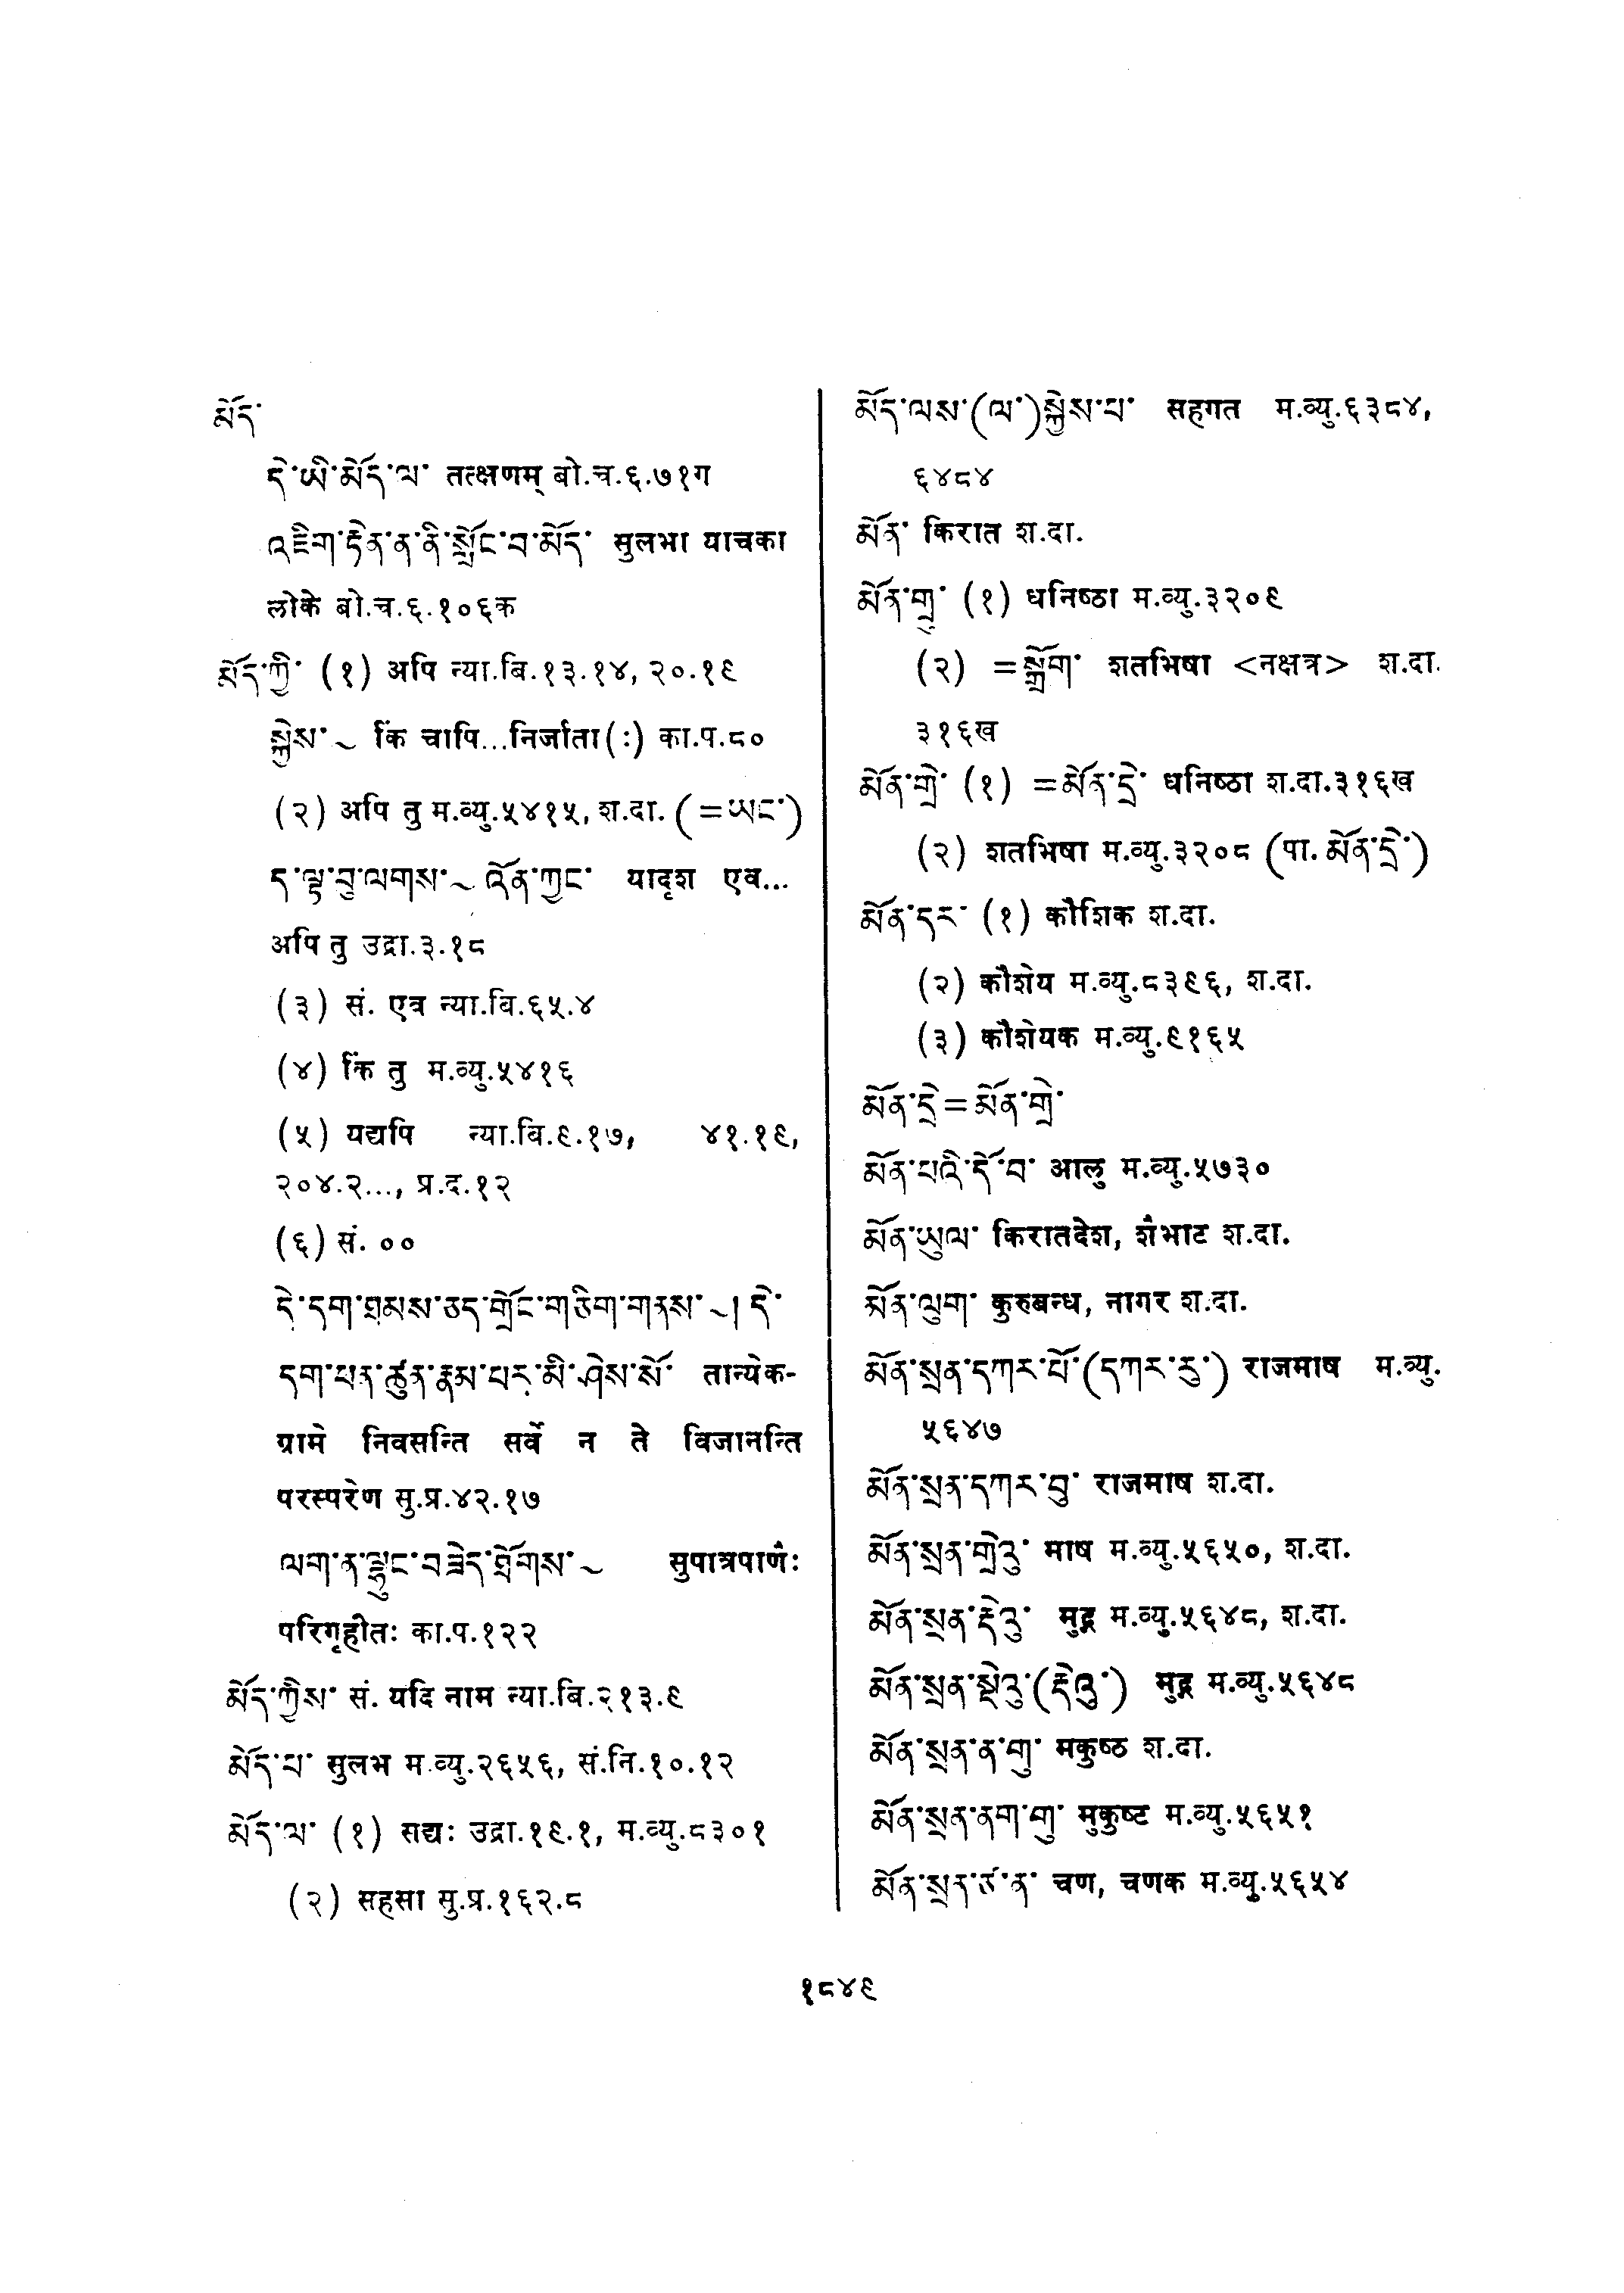 མོད་
དེ་ཡི་མོད་ལ་ तत्क्षणम् बो.च.६.७१ग
འཇིག་རྟེན་ན་ནི་སློང་བ་མོད་ सुलभा याचका
लोके बो.च.६.१०६क
མོད་ཀྱི་ (१) अपि न्या.बि.१३.१४, २०.१९
སྐྱེས་~ किं चापि...निर्जाता(ः) का.प.८०
(२) अपि तु म.व्यु.५४१५, श.दा. (=ཡང་)
ད་ལྟ་བུ་ལགས་~ འོན་ཀྱང་ यादृश एव...
अपि तु उद्रा.३.१८
(३) सं. एत्र न्या.बि.६५.४
(४) किं तु म.व्यु.५४१६
(५) यद्यपि न्या.बि.९.१७, ४१.१९,
२०४.२..., प्र.द.१२
(६) सं. ००
དེ་དག་ཐམས་ཅད་གྲོང་གཅིག་གནས་~། དེ་
དག་ཕན་ཚུན་རྣམ་པར་མི་ཤེས་སོ་ तान्येक-
ग्रामे निवसन्ति सर्वे न ते विजानन्ति
परस्परेण सु.प्र.४२.१७
ལག་ན་ལྷུང་བཟེད་ཐོགས་~ सुपात्रपाणंः
परिगृहीतः का.प.१२२
མོད་ཀྱིས་ सं. यदि नाम न्या.बि.२१३.९
མོད་པ་ सुलभ म.व्यु.२६५६, सं.नि.१०.१२
མོད་ལ་ (१) सद्यः उद्रा.१९.१, म.व्यु.८३०१
(२) सहसा सु.प्र.१६२.८
མོད་ལས་(ལ་)སྐྱེས་པ་ सहगत म.व्यु.६३८४,
६४८४
མོན་ किरात श.दा.
མོན་གྲུ་ (१) धनिष्ठा म.व्यु.३२०९
(२) =སྒྲོག་ शतभिषा <नक्षत्र> श.दा.
३१६ख
མོན་གྲེ་ (१) =མོན་དྲེ་ धनिष्ठा श.दा.३१६ख
(२) शतभिषा म.व्यु.३२०८ (पा. མོན་དྲེ་)
མོན་དར་ (१) कौशिक श.दा.
(२) कौशेय म.व्यु.८३९६, श.दा.
(३) कौशेयक म.व्यु.९१६५
མོན་དྲེ=མོན་གྲེ་
མོན་པའི་དོ་བ་ आलु म.व्यु.५७३०
མོན་ཡུལ་ किरातदेश, शंभाट श.दा.
མོན་ལུག་ कुरुबन्ध, नागर श.दा.
མོན་སྲན་དཀར་པོ་(དཀར་རུ་) राजमाष म.व्यु.
५६४७
མོན་སྲན་དཀར་བུ་ राजमाष श.दा.
མོན་སྲན་གྲེའུ་ माष म.व्यु.५६५०, श.दा.
མོན་སྲན་རྡེའུ་ मुद्ग म.व्यु.५६४८, श.दा.
མོན་སྲན་སྡེའུ་(རྡེའུ་) मुद्ग म.व्यु.५६४८
མོན་སྲན་ན་གུ་ मकुष्ठ श.दा.
མོན་སྲན་ནག་གུ་ मुकुष्ट म.व्यु.५६५१
མོན་སྲན་ཙ་ན་ चण, चणक म.व्यु.५६५४
१८४९